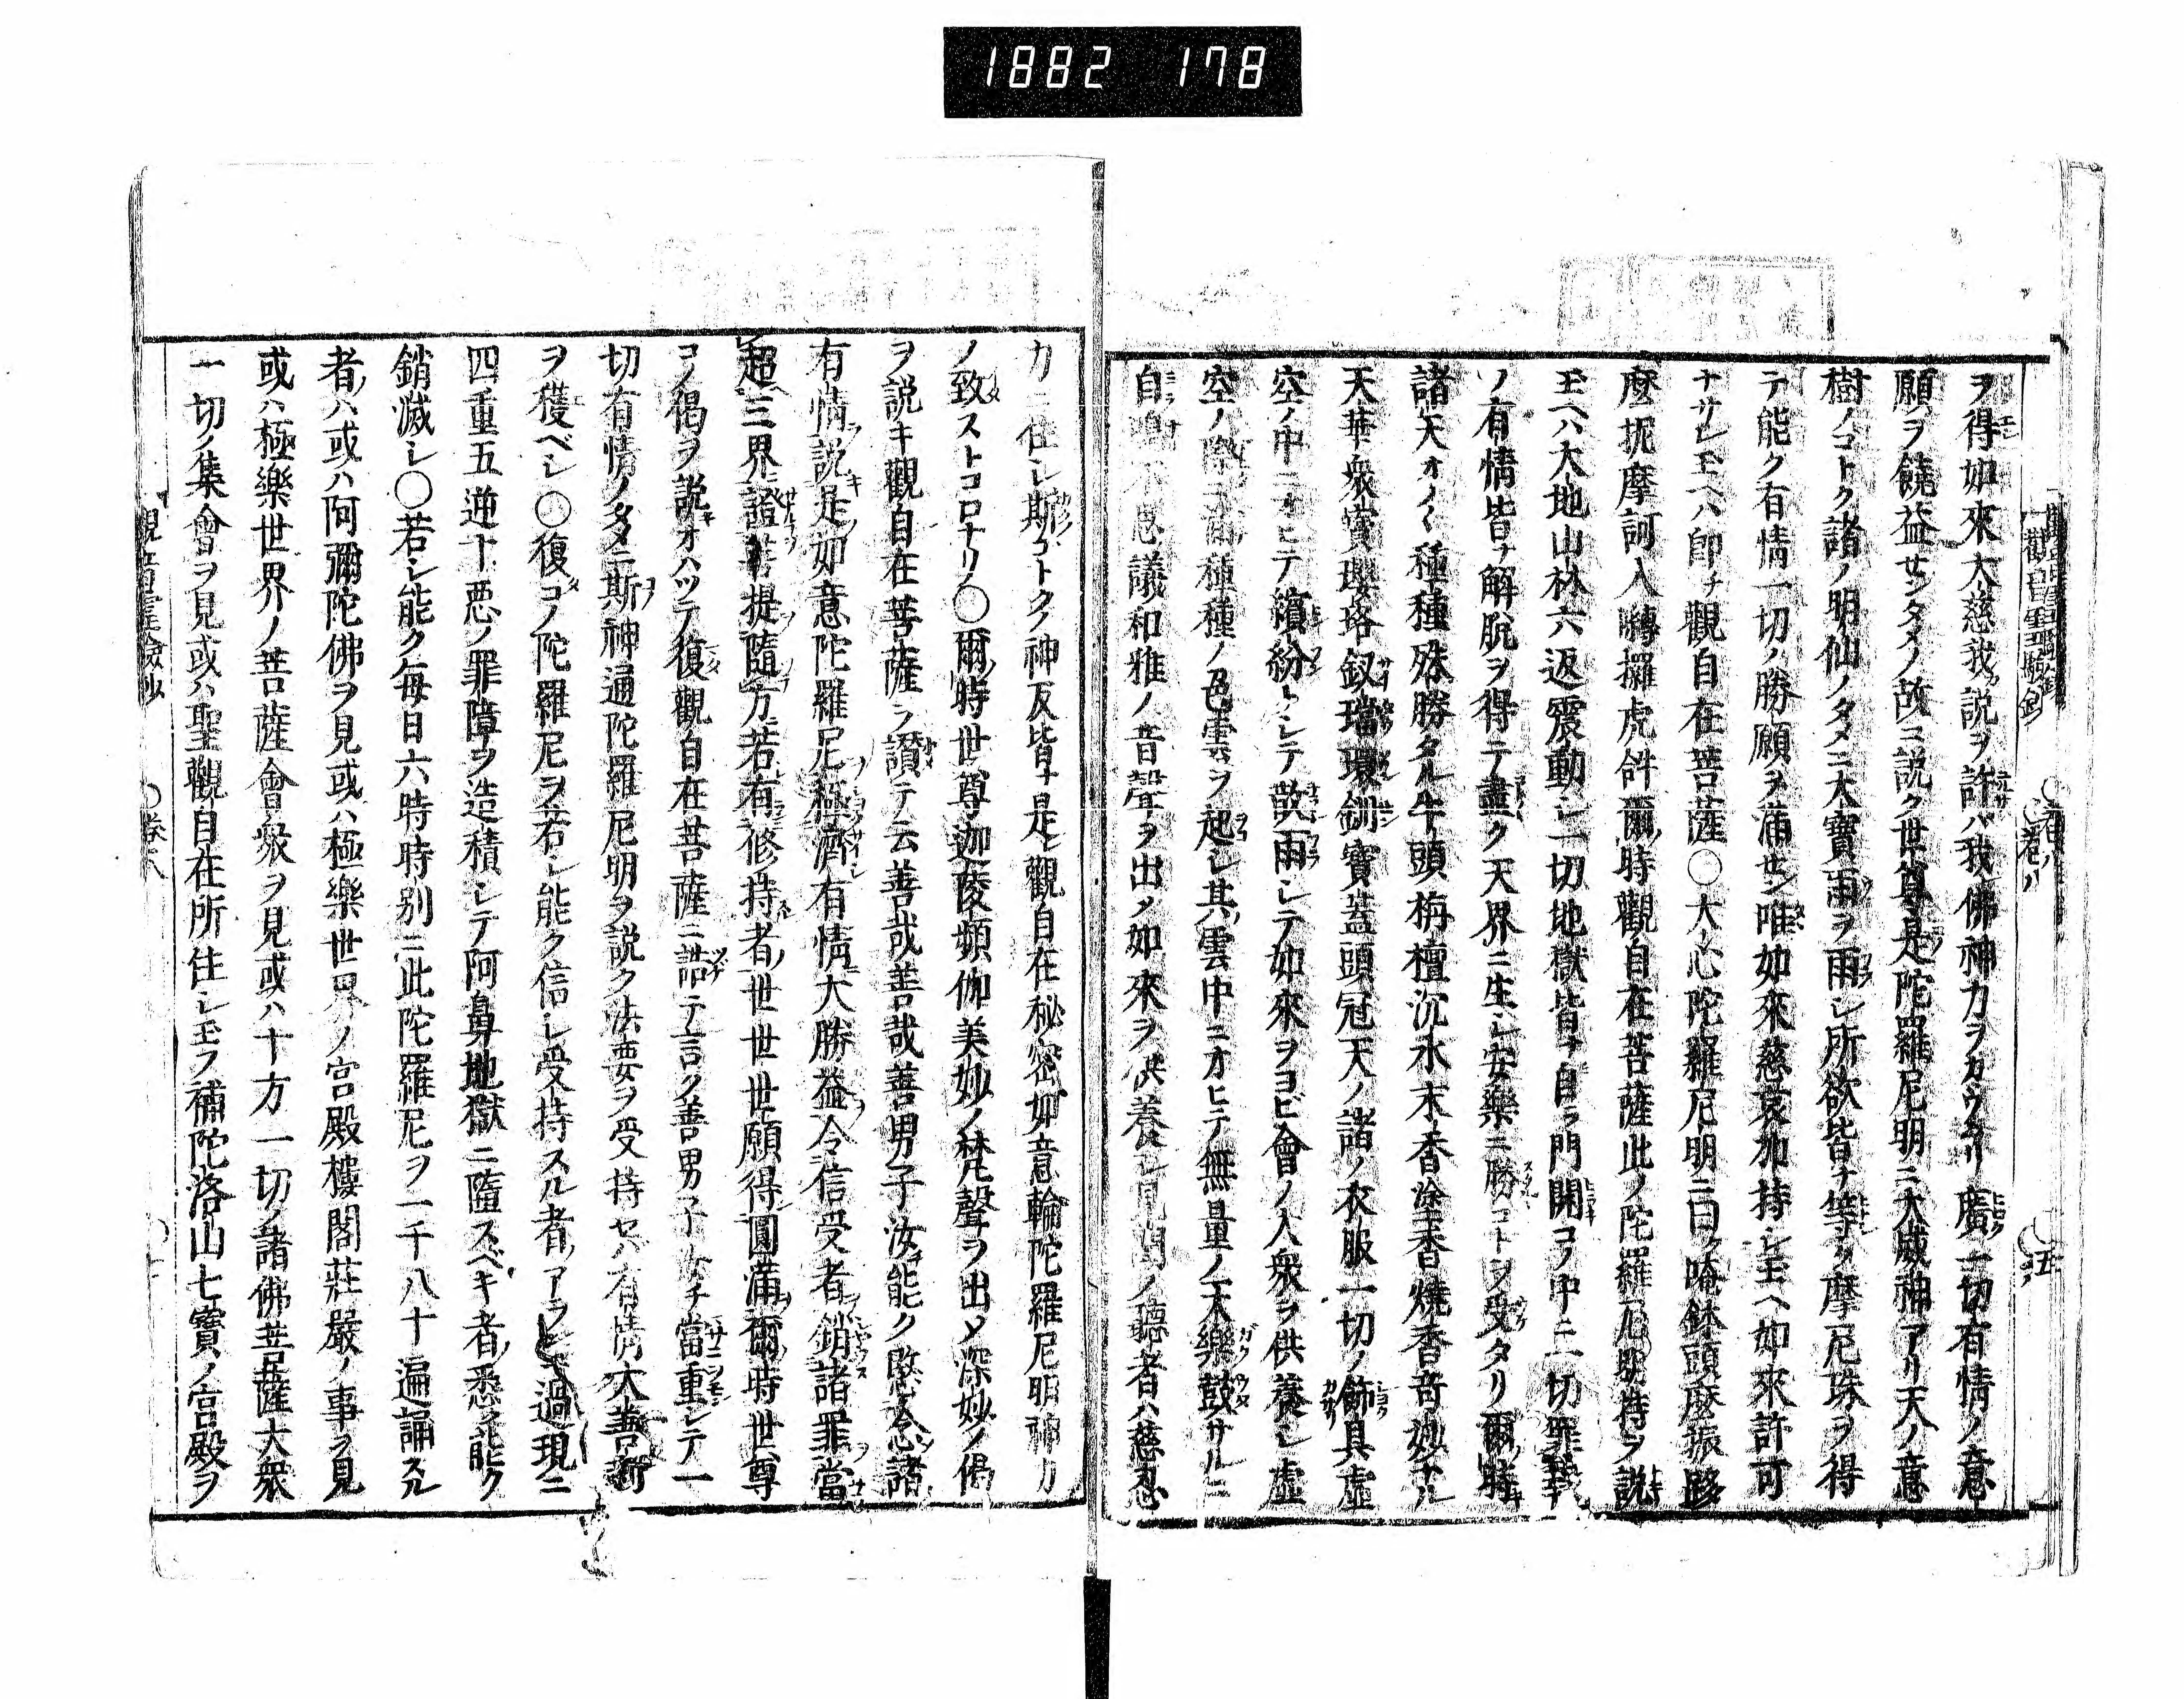 1882 178
ヲ得如來大慈我説ヲ許ハ我佛神力ヲカウムリ廣一切有情ノ意
願ヲ饒益センタメノ故ニ説ク世尊是陀羅尼明ニ大威神アリ天ノ意
樹ノコトク諸ノ明仙ノタメニ大寶雨ヲ雨シ所欲皆ナ等ク摩尼珠ヲ得
テ能ク有情一切ノ勝願ヲ満セン唯如來慈哀加持シ玉ヘ如來許可
ナサレ玉ヘハ即チ觀自在菩薩〇大心陀羅尼明ニ曰ク唵鉢頭麼振跢
麼抳摩訶入嚩攞虎𤙖爾時觀自在菩薩此ノ陀羅尼明持ヲ説
玉ヘハ大地山林六返震動シ一切地獄皆ナ自ラ門開コノ中ニ一切罪
ノ有情皆ナ解脱ヲ得テ盡ク天界ニ生シ安樂ニ勝コトヲ受タリ爾時
諸天オノ〱種種殊勝タル牛頭栴檀沉水末香塗香燒香奇妙ナル
天華衆寳瓔珞釵璫環釧寳蓋頭冠天ノ諸ノ衣服一切ノ飾具虛
空ノ中ニオヒテ繽紛トシテ散雨シテ如來ヲヨビ會ノ人衆ヲ供養シ虛
空ノ際ニ種種ノ色雲ヲ起シ其雲中ニオヒテ無量ノ天樂鼓サルニ
自鳴不思議和雅ノ音聲ヲ出メ如來ヲ供養シ見聞ノ聽者ハ慈忍
力ニ住シ斯コトクノ神反皆ナ是觀自在秘密如意輪陀羅尼明神力
ノ致ストコロナリ〇爾時世尊迦陵頻伽美妙ノ梵聲ヲ出メ深妙ノ偈
ヲ説キ觀自在菩薩ヲ讃テ云善哉善哉善男子汝能ク愍念諸
有情説是如意陀羅尼極濟有情大勝益令信受者銷諸罪當
超三界證菩提隨方若有修持者世世世世願得圓滿爾時世尊
コノ偈ヲ説オハツテ復觀自在菩薩ニ誥テ言ク善男子汝チ當重シテ一
切有情ノタメニ斯神通陀羅尼明ヲ説ク法要ヲ受持セバ有情大善
ヲ穫ベシ〇復コノ陀羅尼ヲ若シ能ク信シ受持スル者アラ過現ニ
四重五逆十悪ノ罪障ヲ造積シテ阿鼻地獄ニ隨スベキ者悉ク能ク
銷滅シ〇若シ能ク毎日六時時別ニ此陀羅尼ヲ一千八十遍誦スル
者ハ或ハ阿彌陀佛ヲ見或ハ極樂世界ノ宮殿樓閣莊嚴ノ事ヲ見
或ハ極樂世界ノ菩薩會衆ヲ見或ハ十方一切ノ諸佛菩薩大衆
一切ノ集會ヲ見或ハ聖觀自在所住シ玉フ補陀洛山七寳ノ宮殿ヲ